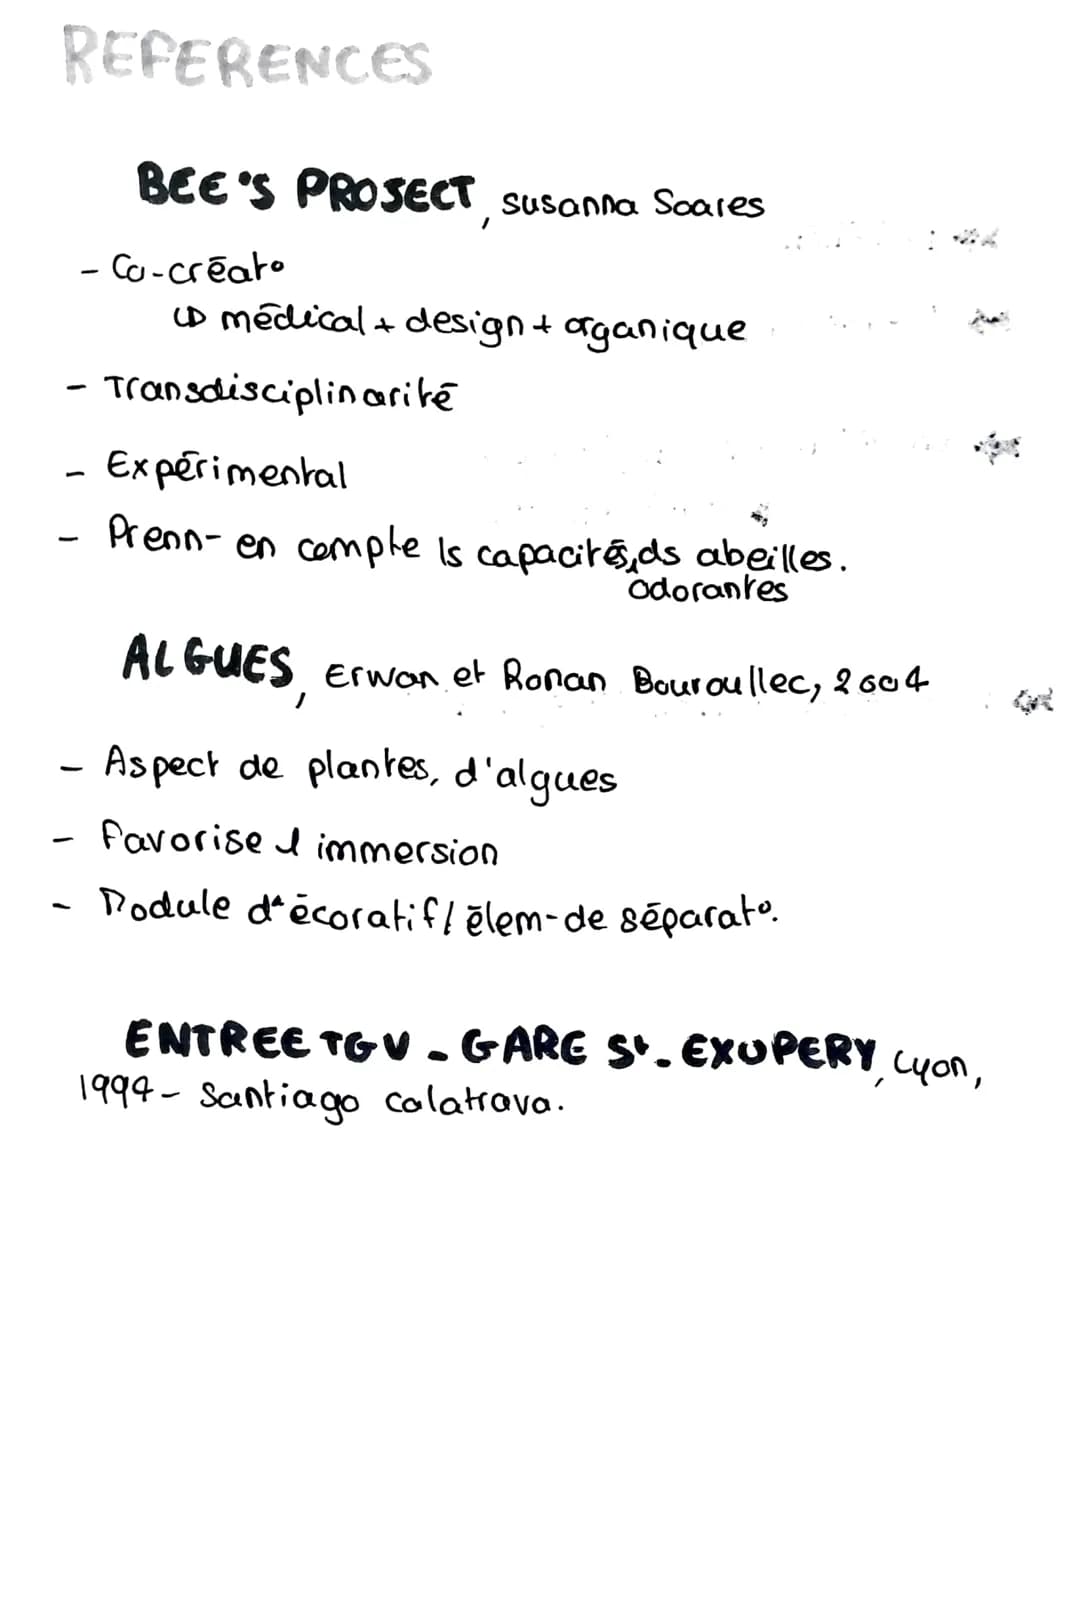 REFERENCES
BEE'S PROJECT, Susanna Soares
- Co-créat°
↳ médical + design + organique
- Transdisciplinarité
- Expérimental
- Prenn- en compte ls capacités, ds abeilles.
odorantes
ALGUES, Erwan et Ronan Bouroullec, 2004
- Aspect de plantes, d'algues
- Favorise l immersion
- Module d'écoratif / élem- de séparat°.
ENTREE TGV - GARE St. EXUPERY, Lyon,
1994 - Santiago Calatrava.